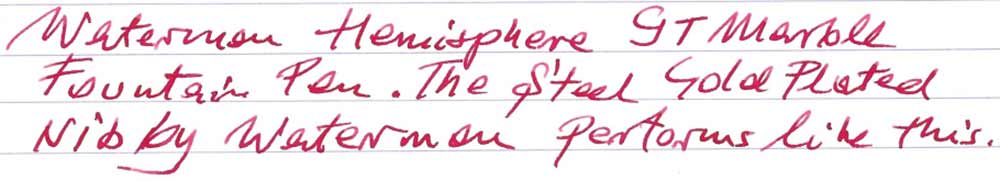 Waterman Hemisphere GT Marble
Fountain Pen. The Steel Gold Plated
Nib by Waterman performs like this.